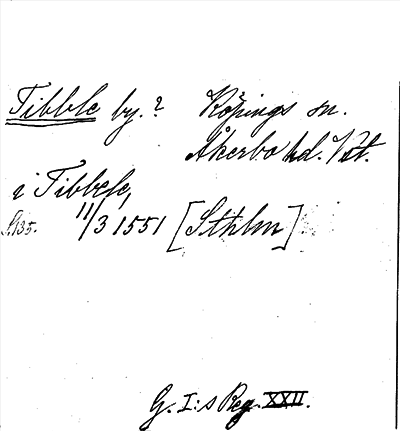 Tibble by.? Köpings sn.
Åkerbo hd. Vstl.
i Tibbele,
S. 135. 11/3 1551 [Sthlm]
G. I:s Reg. XXII.